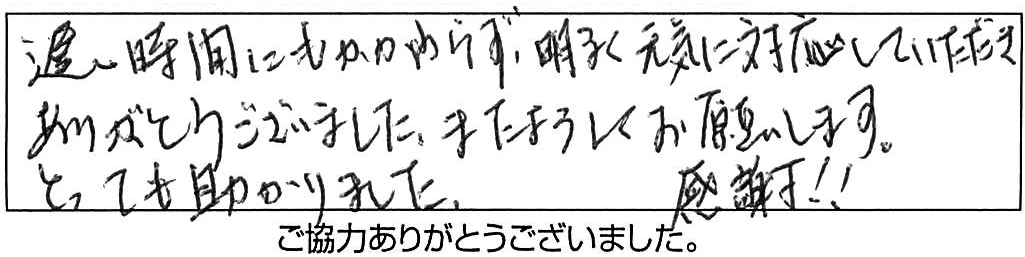 遅い時間にもかかわらず、明るく元気に対応していただき
ありがとうございました。またよろしくお願いします。
とっても助かりました。 感謝!!
ご協力ありがとうございました。